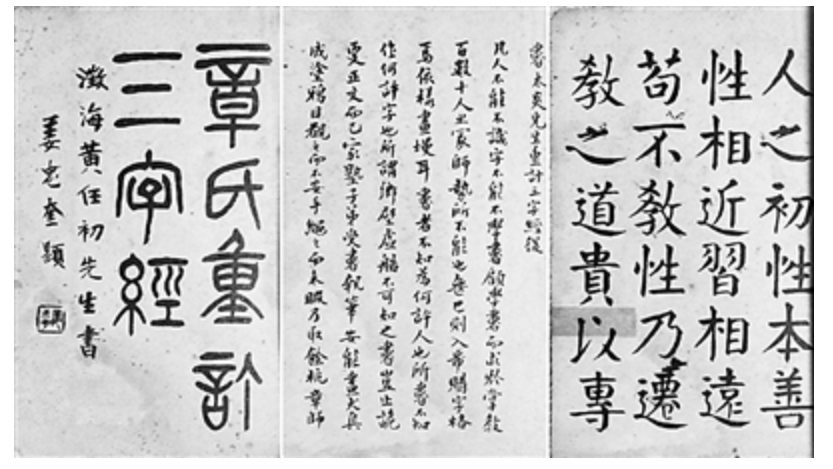 章氏重訂
三字經
澂海黃任初先生書
姜忠奎題
書太炎先生重訂三字經後
凡人不能不識字不能不學書顧學書而求於掌教
百數十人之師勢所不能也無已則入市購字格
焉依樣畫墁耳書者不知為何許人也所書不知
作何許字也所謂鄉壁虛艁不可知之書豈止詭
更正文而已家塾子弟受書執筆安能盡
成塗鴉目而不安手繩之而未暇乃取餘杭章師
人之初性本善
性相近習相遠
苟不教性乃遷
教之道貴以專